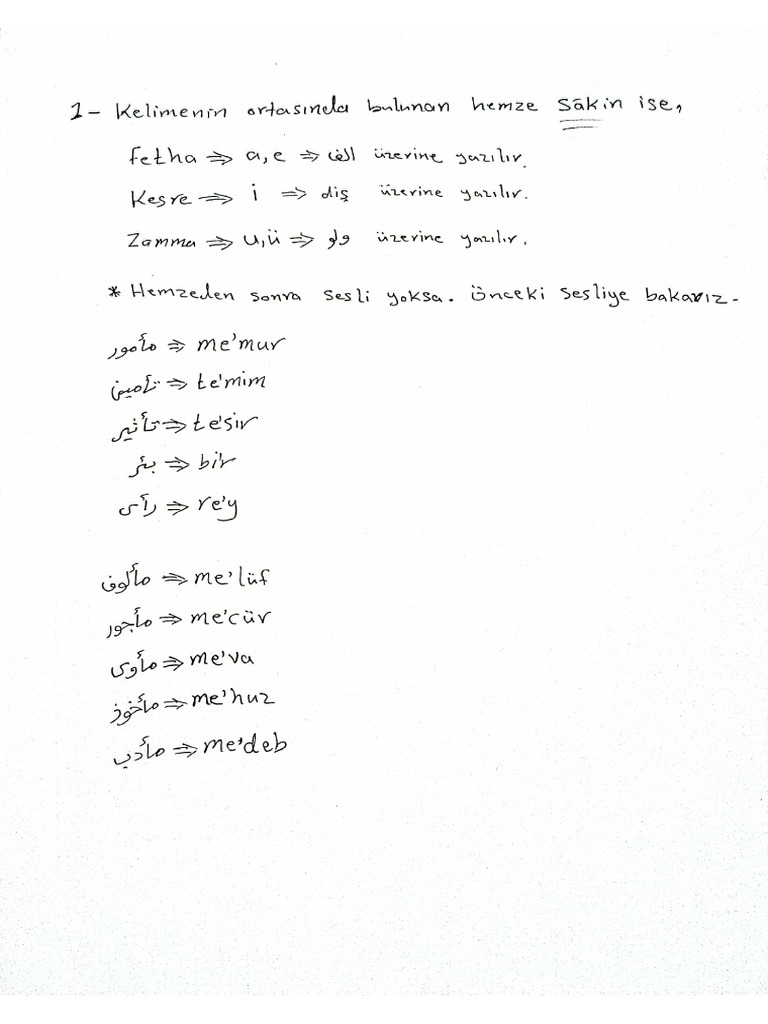 1- Kelimenin ortasında bulunan hemze sâkin ise,
Fetha ⇒ a, e ⇒ الف üzerine yazılır.
Kesre ⇒ i ⇒ diş üzerine yazılır.
Zamma ⇒ u, ü ⇒ واو üzerine yazılır.
* Hemzeden sonra sesli yoksa. Önceki sesliye bakarız.
مأمور ⇒ me'mur
تأمين ⇒ te'mim
تأثير ⇒ te'sir
بئر ⇒ bi'r
رأى ⇒ re'y
مألوف ⇒ me'lüf
مأجور ⇒ me'cür
مأوى ⇒ me'va
مأخوذ ⇒ me'huz
مأدب ⇒ me'deb